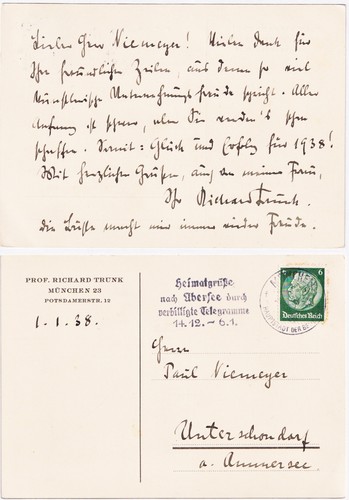 Lieber Herr Niemeyer! Vielen Dank für
Ihre freundlichen Zeilen, aus denen so viel
künstlerische Unternehmungsfreude spricht. Aller
Anfang ist schwer, aber Sie werden's schon
schaffen. Somit: Glück und Erfolg für 1938!
Mit herzlichen Grüßen, auch an meine Frau,
Ihr Richard Trunk.
Die Büste macht mir immer wieder Freude.
PROF. RICHARD TRUNK
MÜNCHEN 23
POTSDAMERSTR. 12
1.1.38.
Heimatgrüße
nach Übersee durch
verbilligte Telegramme
14.12. – 6.1.
6
Deutsches Reich
HAUPTSTADT DER
Herrn
Paul Niemeyer
Unterschondorf
a. Ammersee.